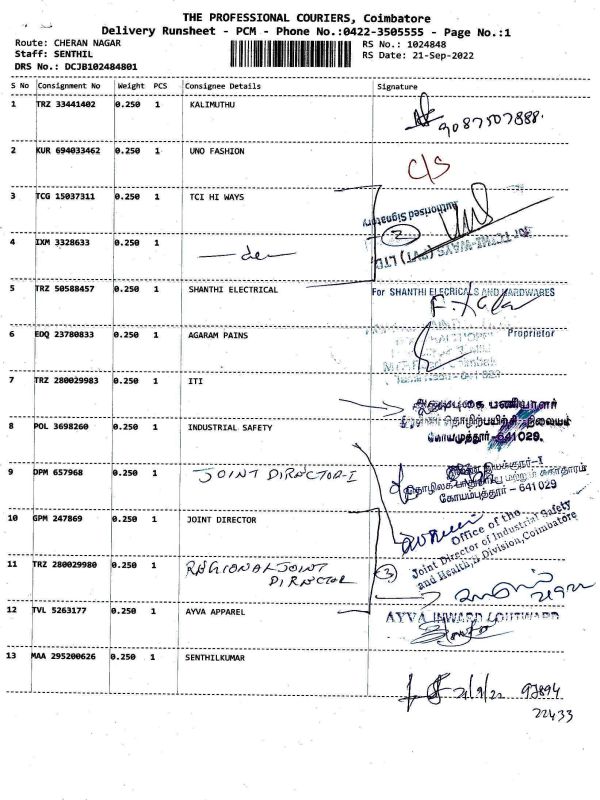 THE PROFESSIONAL COURIERS, Coimbatore
Delivery Runsheet - PCM - Phone No.:0422-3505555 - Page No.:1
Route: CHERAN NAGAR
RS No.: 1024848
Staff: SENTHIL
RS Date: 21-Sep-2022
DRS No.: DCJB102484801
S No Consignment No Weight PCS Consignee Details Signature
1 TRZ 33441402 0.250 1 KALIMUTHU
9087507888.
2 KUR 694033462 0.250 1 UNO FASHION
C/S
3 TCG 15037311 0.250 1 TCI HI WAYS
Authorised Signatory
2
4 IXM 3328633 0.250 1
5 TRZ 50588457 0.250 1 SHANTHI ELECTRICAL
For SHANTHI ELECRICALS AND HARDWARES
Proprietor
6 EDQ 23780833 0.250 1 AGARAM PAINS
7 TRZ 280029983 0.250 1 ITI
கோயமுத்தூர் -641029.
8 POL 3698260 0.250 1 INDUSTRIAL SAFETY
9 DPM 657968 0.250 1 JOINT DIRECTOR-I
கோயம்புத்தூர் - 641029
10 GPM 247869 0.250 1 JOINT DIRECTOR
Office of the
Joint Director of Industrial Safety
and Health, Division, Coimbatore
11 TRZ 280029980 0.250 1 REGIONAL JOINT
DIRECTOR
3
12 TVL 5263177 0.250 1 AYVA APPAREL
AYVA INWARD
13 MAA 295200626 0.250 1 SENTHILKUMAR
21/9/22 97894
22433